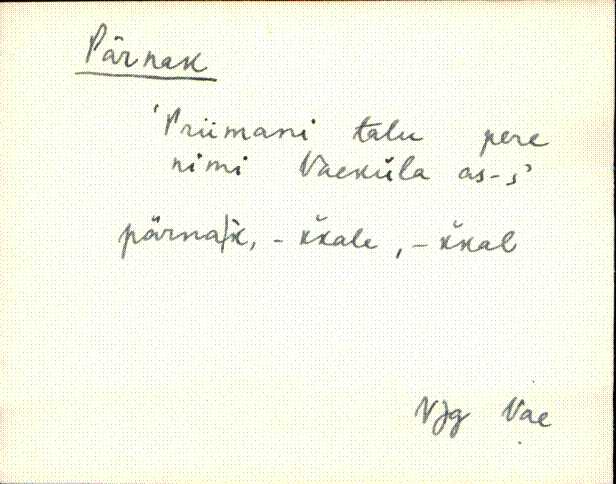 Pärnak
'Priimani talu pere
nimi Vaeküla as-s'
pärnak̆, -k̆kale, -k̆kal
VJg Vae